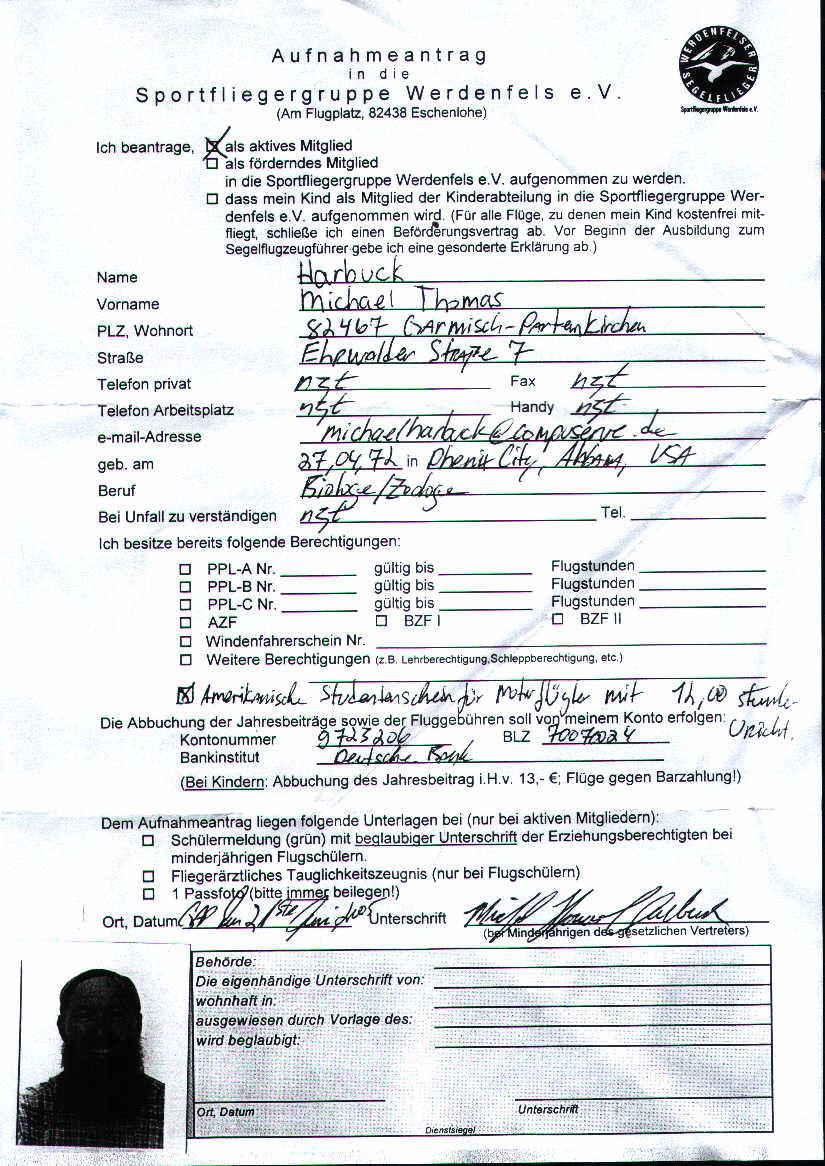 Aufnahmeantrag
in die
Sportfliegergruppe Werdenfels e.V.
(Am Flugplatz, 82438 Eschenlohe)
WERDENFELSER SEGELFLIEGER
Sportfliegergruppe Werdenfels e.V.
Ich beantrage, ☒ als aktives Mitglied
☐ als förderndes Mitglied
in die Sportfliegergruppe Werdenfels e.V. aufgenommen zu werden.
☐ dass mein Kind als Mitglied der Kinderabteilung in die Sportfliegergruppe Wer-
denfels e.V. aufgenommen wird. (Für alle Flüge, zu denen mein Kind kostenfrei mit-
fliegt, schließe ich einen Beförderungsvertrag ab. Vor Beginn der Ausbildung zum
Segelflugzeugführer gebe ich eine gesonderte Erklärung ab.)
Name Harbuck
Vorname Michael Thomas
PLZ, Wohnort 82467 Garmisch-Partenkirchen
Straße Ehrwalder Straße 7
Telefon privat nzt Fax nzt
Telefon Arbeitsplatz nzt Handy nzt
e-mail-Adresse michaelharbuck@compuserve.de
geb. am 27,04,72 in Phenix City, USA
Beruf Biologe/Zoologe
Bei Unfall zu verständigen nzt Tel.
Ich besitze bereits folgende Berechtigungen:
☐ PPL-A Nr. gültig bis Flugstunden
☐ PPL-B Nr. gültig bis Flugstunden
☐ PPL-C Nr. gültig bis Flugstunden
☐ AZF ☐ BZF I ☐ BZF II
☐ Windenfahrerschein Nr.
☐ Weitere Berechtigungen (z.B. Lehrberechtigung,Schleppberechtigung, etc.)
☒ Amerikanische Studentenschein für Motorflügler mit 12,00 stunde-
Die Abbuchung der Jahresbeiträge sowie der Fluggebühren soll von meinem Konto erfolgen:
Kontonummer 9723206 BLZ 70070024
Bankinstitut Deutsche Bank
(Bei Kindern: Abbuchung des Jahresbeitrag i.H.v. 13,- €; Flüge gegen Barzahlung!)
Dem Aufnahmeantrag liegen folgende Unterlagen bei (nur bei aktiven Mitgliedern):
☐ Schülermeldung (grün) mit beglaubiger Unterschrift der Erziehungsberechtigten bei
minderjährigen Flugschülern.
☐ Fliegerärztliches Tauglichkeitszeugnis (nur bei Flugschülern)
☐ 1 Passfoto (bitte immer beilegen!)
Ort, Datum Unterschrift
(bei Minderjährigen des gesetzlichen Vertreters)
Behörde:
Die eigenhändige Unterschrift von:
wohnhaft in:
ausgewiesen durch Vorlage des:
wird beglaubigt:
Ort, Datum Unterschrift
Dienstsiegel